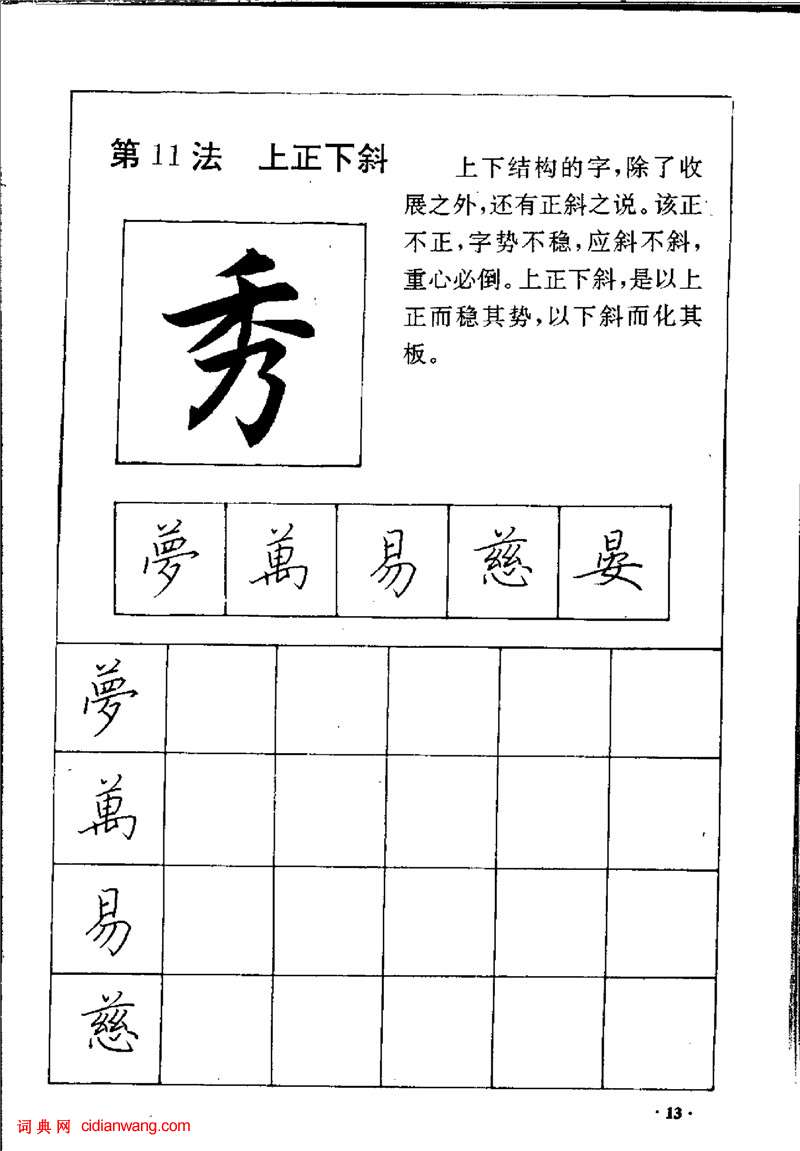 第11法 上正下斜
上下结构的字,除了收
展之外,还有正斜之说。该正
不正,字势不稳,应斜不斜,
重心必倒。上正下斜,是以上
正而稳其势,以下斜而化其
板。
秀
夢 萬 易 慈 晏
夢
萬
易
慈
·13·
词典网 cidianwang.com